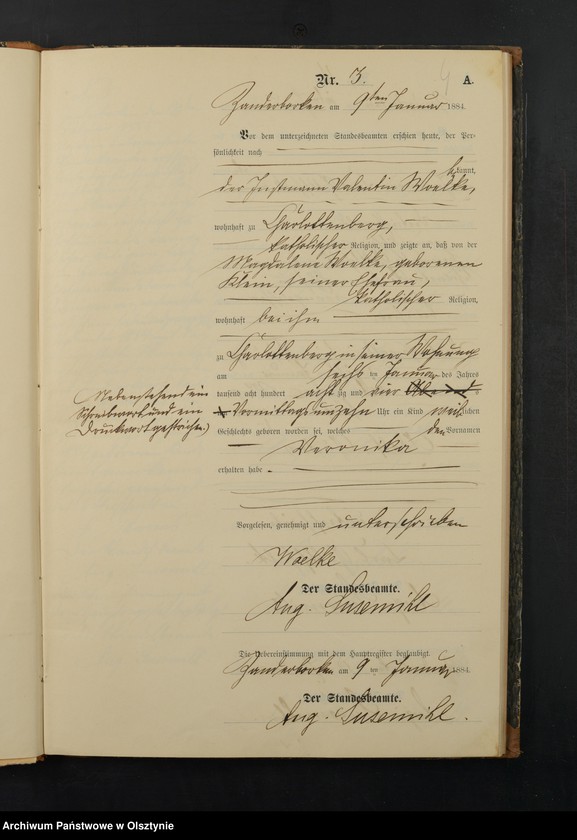 Nr. 3.
A.
4
Zanderborken am 9ten Januar 1884.
Vor dem unterzeichneten Standesbeamten erschien heute, der Per-
sönlichkeit nach
bekannt,
der Instmann Valentin Woelke,
wohnhaft zu Charlottenberg,
katholischer Religion, und zeigte an, daß von der
Magdalene Woelke, geborenen
Klein, seiner Ehefrau,
katholischer Religion,
wohnhaft bei ihm
zu Charlottenberg in seiner Wohnung
am sechs ten Januar des Jahres
tausend acht hundert acht zig und vier
Vormittags um zehn Uhr ein Kind weiblichen
Geschlechts geboren worden sei, welches den Vornamen
Veronika
erhalten habe.
Nebenstehend ein
Schreibwort und ein
Druckwort gestrichen.)
Vorgelesen, genehmigt und unterschrieben
Woelke
Der Standesbeamte.
Aug. Susemihl
Die Uebereinstimmung mit dem Hauptregister beglaubigt.
Zanderborken am 9 ten Januar 1884.
Der Standesbeamte.
Aug. Susemihl.
Archiwum Państwowe w Olsztynie